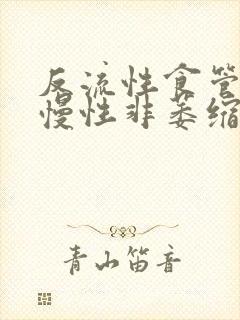 反流性食管
慢性非萎缩
青山笛音